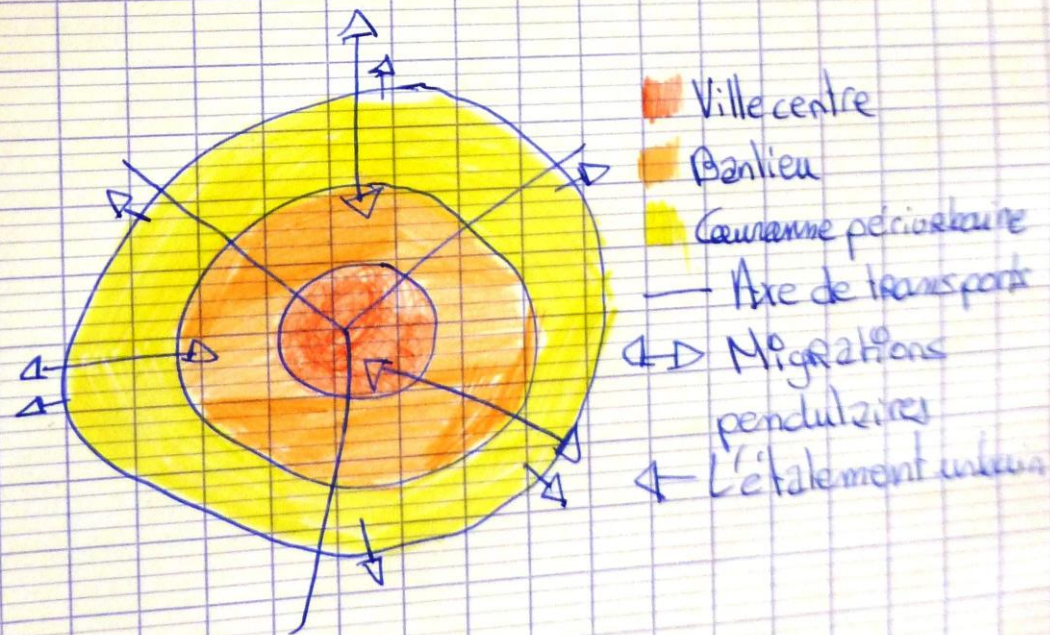 Ville centre
Banlieu
Couronne périurbaine
Axe de transports
Migrations
pendulaires
L'étalement urbain